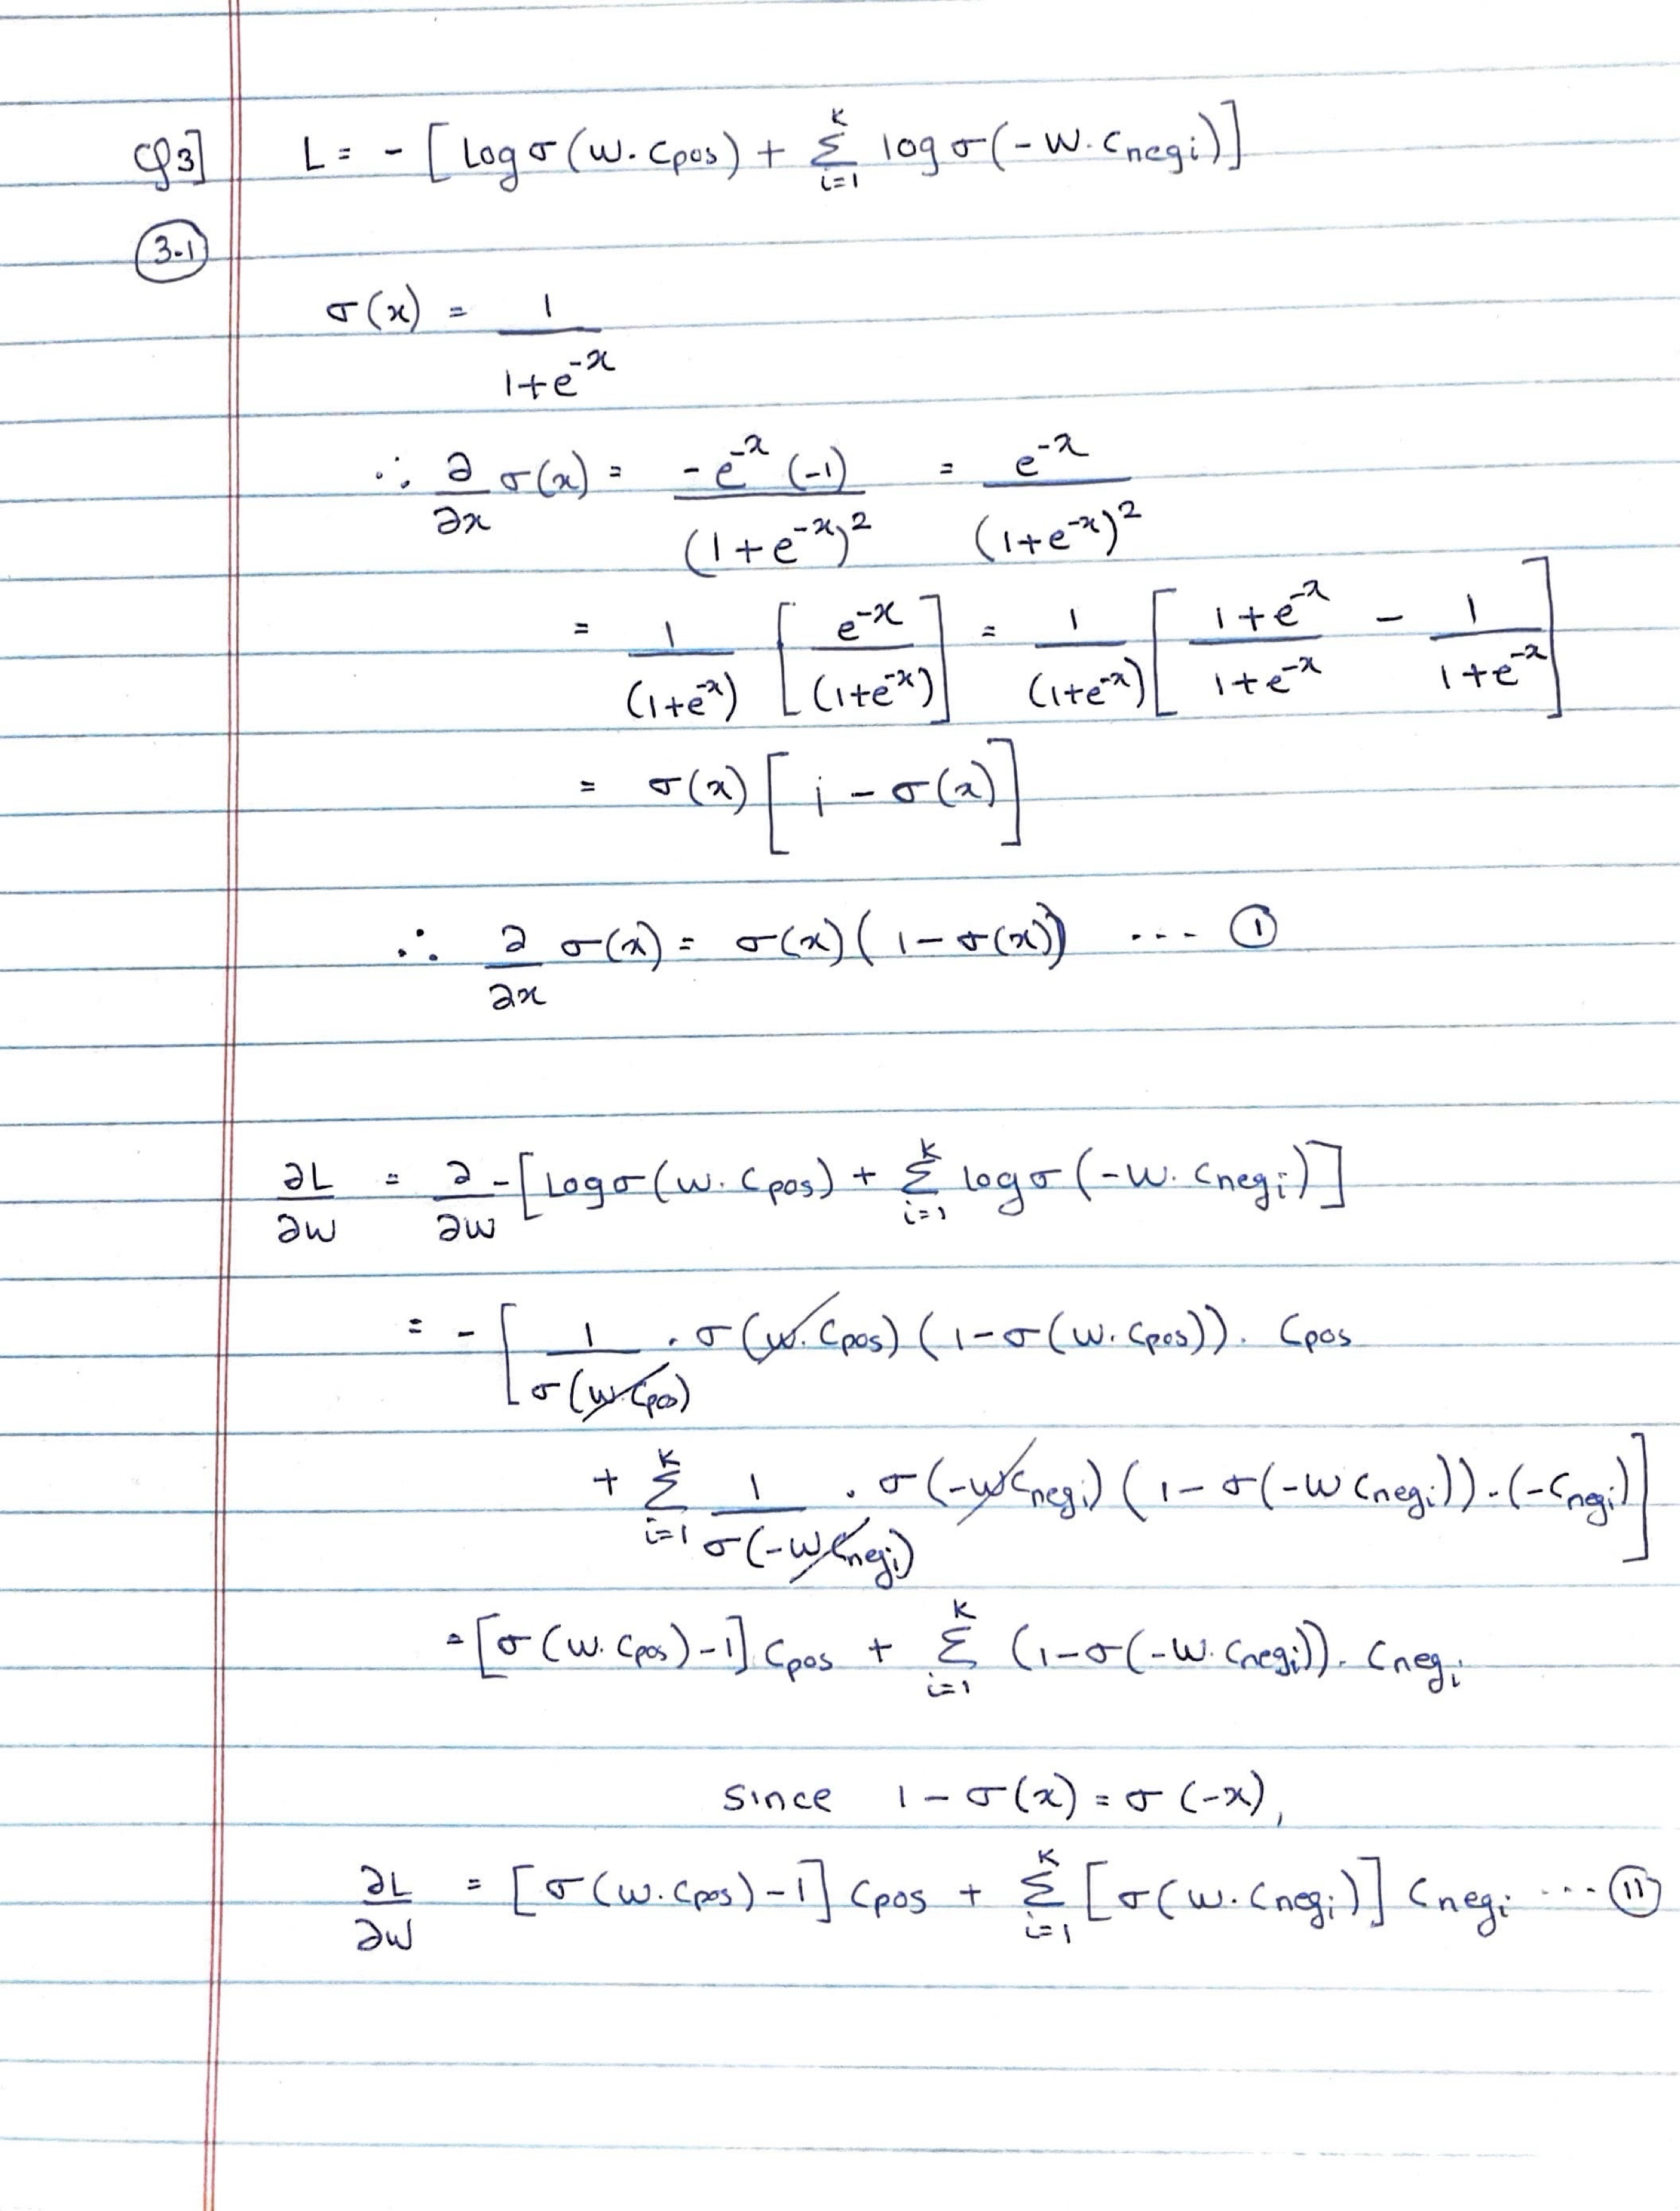 Q3] L = - [ Log σ(w. Cpos) + Σ_{i=1}^{K} log σ(-w. Cnegi) ]
3.1
σ(x) = 1 / (1+e^{-x})
∴ ∂/∂x σ(x) = -e^{-x} (-1) / (1+e^{-x})^2 = e^{-x} / (1+e^{-x})^2
= 1 / (1+e^{-x}) [ e^{-x} / (1+e^{-x}) ] = 1 / (1+e^{-x}) [ (1+e^{-x}) / (1+e^{-x}) - 1 / (1+e^{-x}) ]
= σ(x) [ 1 - σ(x) ]
∴ ∂/∂x σ(x) = σ(x) ( 1 - σ(x)) ... ①
∂L/∂w = ∂/∂w - [ Log σ(w. Cpos) + Σ_{i=1}^{K} log σ(-w. Cnegi) ]
= - [ 1 / σ(w. Cpos) . σ(w. Cpos) ( 1 - σ(w. Cpos)). Cpos
+ Σ_{i=1}^{K} 1 / σ(-w Cnegi) . σ(-w Cnegi) ( 1 - σ(-w Cnegi)) . (-Cnegi) ]
= [ σ(w. Cpos) - 1 ]. Cpos + Σ_{i=1}^{K} (1 - σ(-w. Cnegi)). Cnegi
Since 1 - σ(x) = σ(-x),
∂L/∂w = [ σ(w. Cpos) - 1 ] Cpos + Σ_{i=1}^{K} [ σ(w. Cnegi) ] Cnegi ... ⑪